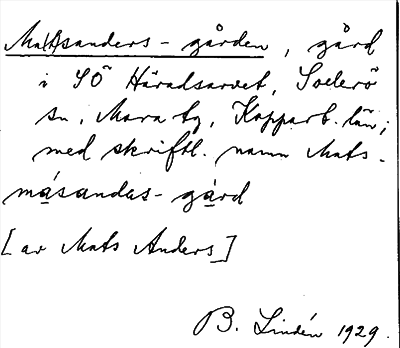 Ma(t)sanders-gården, gård
i SÖ Häradsarvet, Sollerö
sn, Mora tg, Kopparb. län;
med skriftl. namn Mats-
másandas-gård
[av Mats Anders]
B. Lindén 1929.